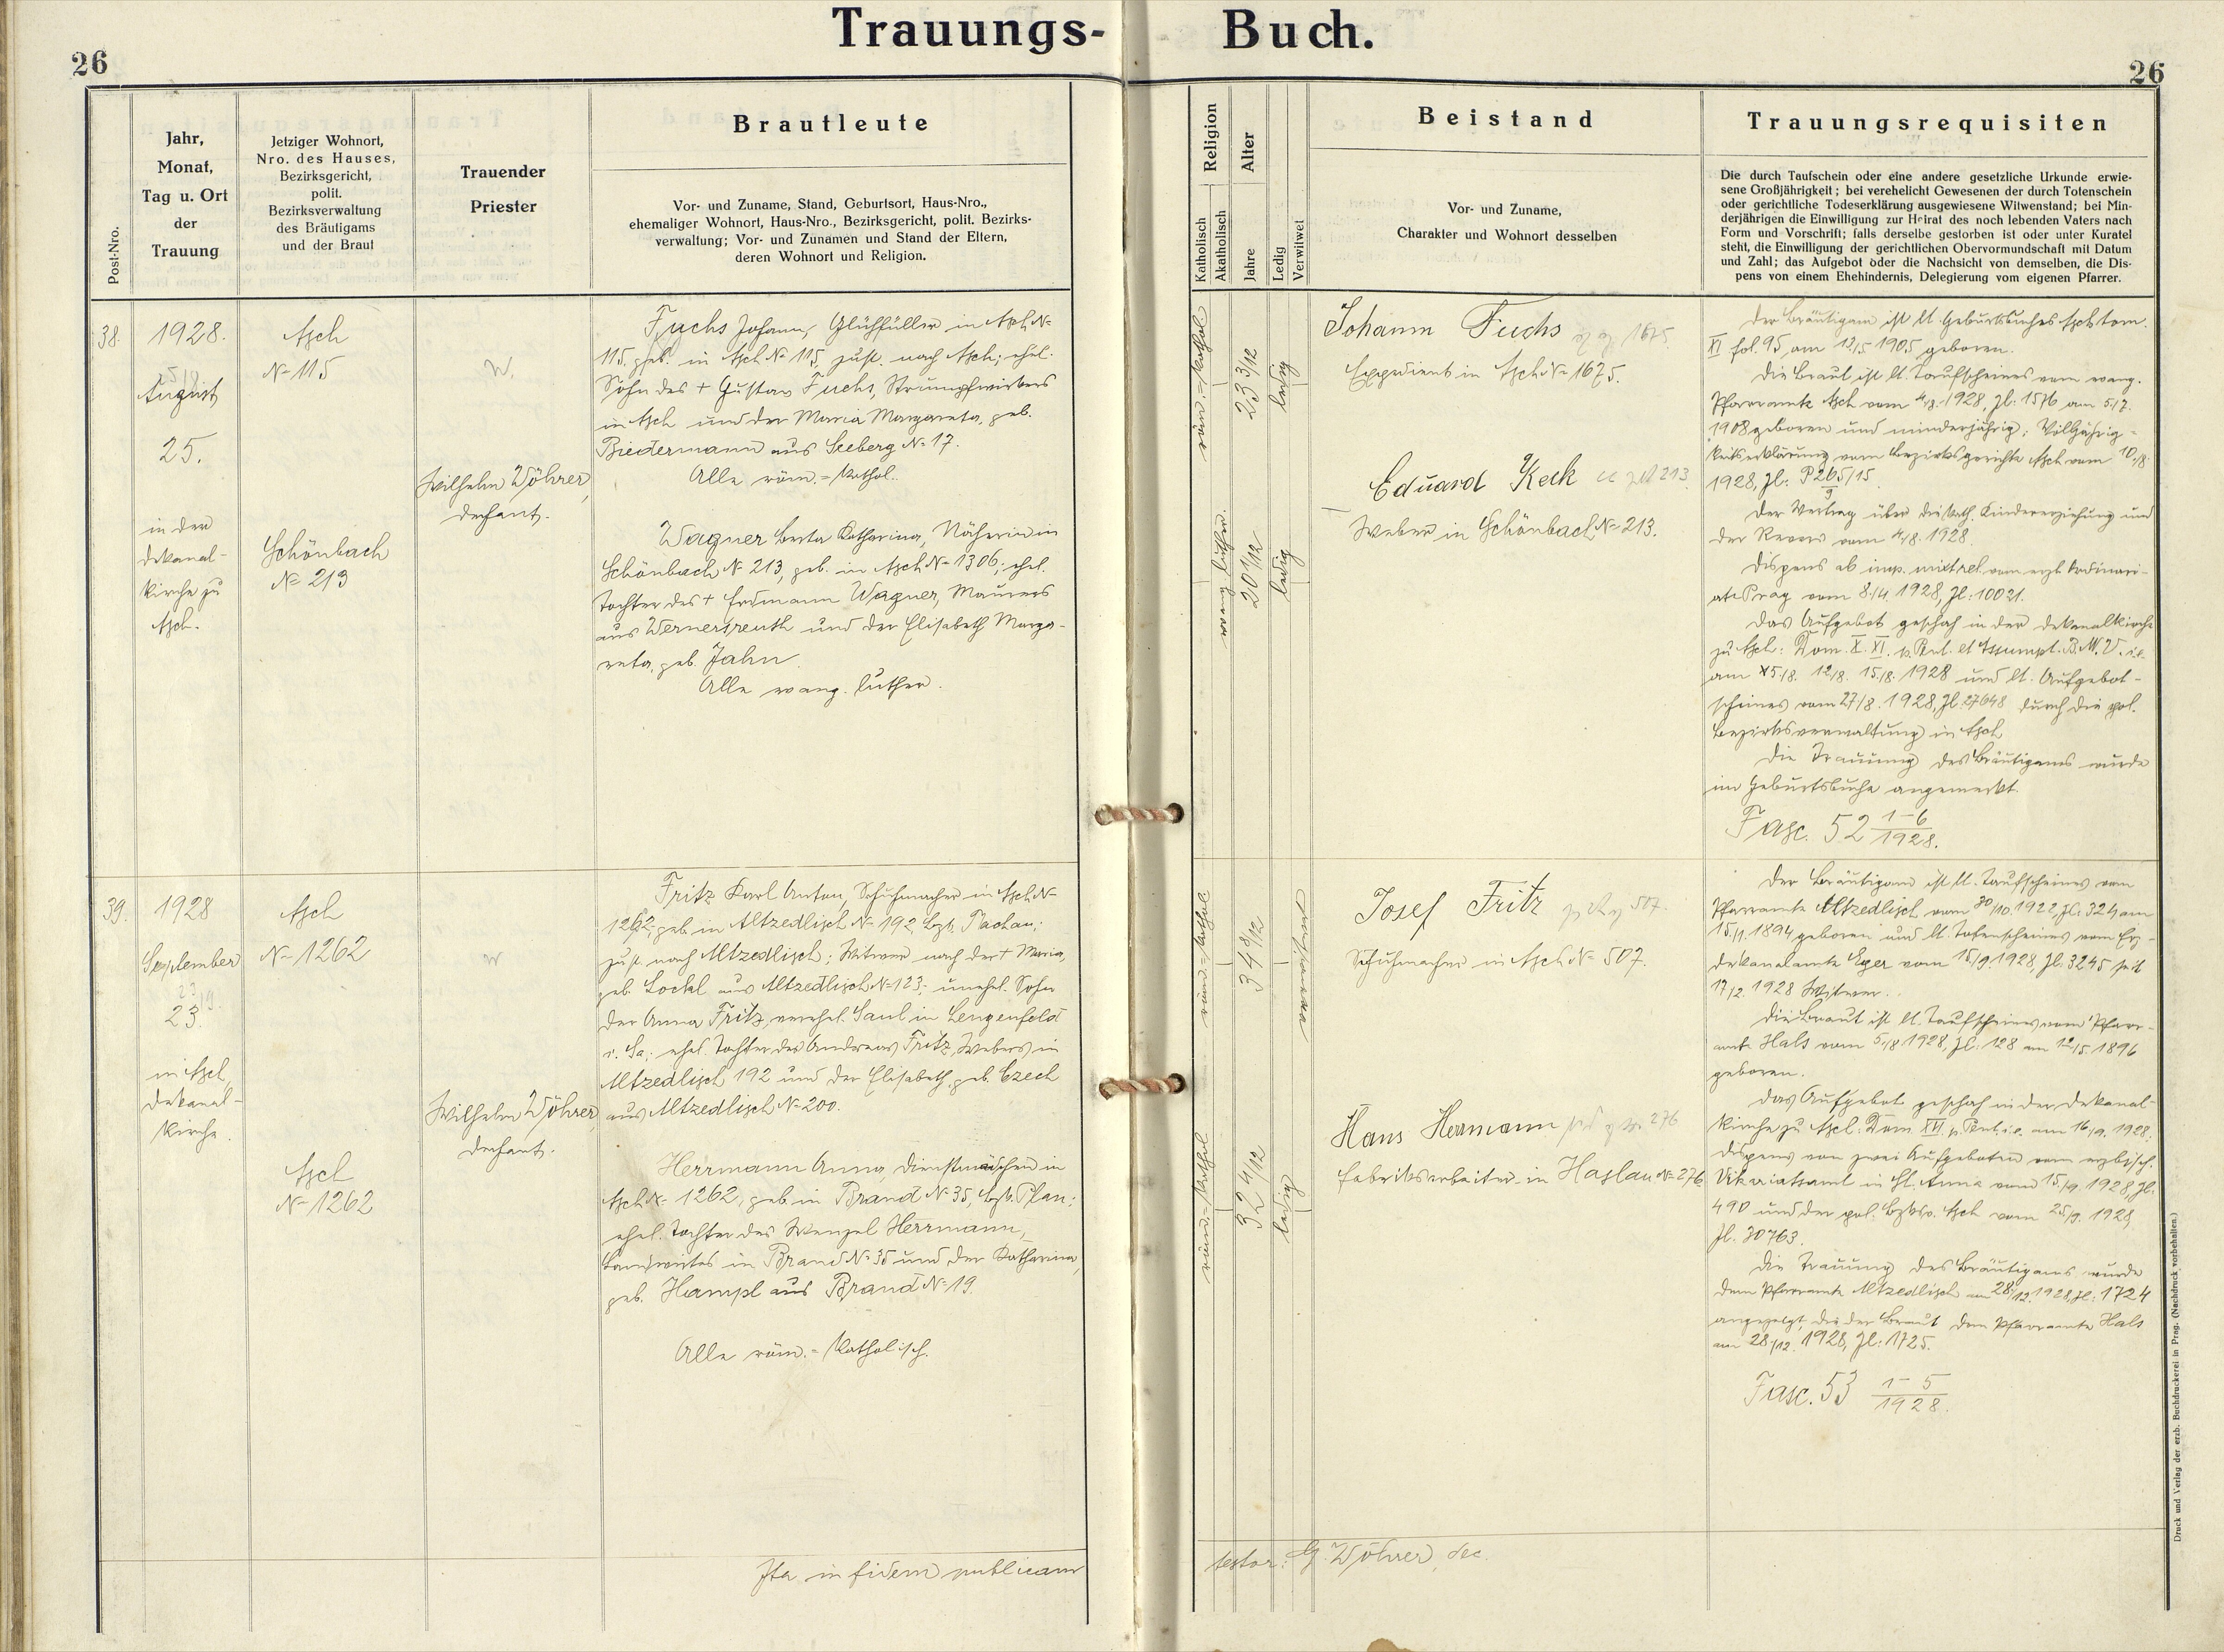 Trauungs- Buch.
26
26
Post-Nro.
Jahr,
Monat,
Tag u. Ort
der
Trauung
Jetziger Wohnort,
Nro. des Hauses,
Bezirksgericht,
polit.
Bezirksverwaltung
des Bräutigams
und der Braut
Trauender
Priester
Brautleute
Vor- und Zuname, Stand, Geburtsort, Haus-Nro.,
ehemaliger Wohnort, Haus-Nro., Bezirksgericht, polit. Bezirks-
verwaltung; Vor- und Zunamen und Stand der Eltern,
deren Wohnort und Religion.
Religion
Katholisch
Akatholisch
Alter
Jahre
Ledig
Verwitwet
Beistand
Vor- und Zuname,
Charakter und Wohnort desselben
Trauungsrequisiten
Die durch Taufschein oder eine andere gesetzliche Urkunde erwie-
sene Großjährigkeit; bei verehelicht Gewesenen der durch Totenschein
oder gerichtliche Todeserklärung ausgewiesene Witwenstand; bei Min-
derjährigen die Einwilligung zur Heirat des noch lebenden Vaters nach
Form und Vorschrift; falls derselbe gestorben ist oder unter Kuratel
steht, die Einwilligung der gerichtlichen Obervormundschaft mit Datum
und Zahl; das Aufgebot oder die Nachsicht von demselben, die Dis-
pens von einem Ehehindernis, Delegierung vom eigenen Pfarrer.
38.
1928.
August
25.
in der
Dekanal-
kirche zu
Asch.
Asch
No 115
Schönbach
No 213
W.
Wilhelm Wöhrer,
Dechant.
Fuchs Johann, in Asch No
115, geb. in Asch No 115, zust. nach Asch; ehel.
Sohn des + Gustav Fuchs, Strumpfwirkers
in Asch und der Maria Margareta, geb.
Biedermann aus Seeberg No 17.
Alle röm.-kathol.
Wagner Berta Katharina, Näherin in
Schönbach No 213, geb. in Asch No 1306; ehel.
Tochter des + Erdmann Wagner, Maurers
aus Wernersreuth und der Elisabeth Marga-
reta, geb. Jahn.
Alle evang. luther.
röm.-kathol
23 3/12
ledig
evang. luther.
20 1/12
ledig
Johann Fuchs 1675
Expedient in Asch No 1675.
Eduard Keck 213
Weber in Schönbach No 213.
Der Bräutigam ist lt. Geburtsbuches Asch tom.
XI fol. 95 am 12/5 1905 geboren.
Die Braut ist lt. Taufscheines vom evang.
Pfarramte Asch vom 4/8. 1928, Zl: 1576 am 5/7.
1908 geboren und minderjährig; Volljährig-
keitserklärung vom Bezirksgerichte Asch vom 10./8.
1928, Zl: P 265/15
9
Der Vertrag über die kath. Kindererziehung und
der Revers vom 4/8. 1928.
Dispens ab imp. mixt. rel. vom erzb. Ordinari-
ate Prag vom 8./4. 1928, Zl: 10021.
Das Aufgebot geschah in der Dekanalkirche
zu Asch: Dom. X. XI. p. Pent. et Assumpt. B. M. V. i.e.
am 5/8. 12/8. 15./8. 1928 und lt. Aufgebot-
scheines vom 27/8. 1928, Zl: 27648 durch die pol.
Bezirksverwaltung in Asch
Die Trauung des Bräutigams wurde
im Geburtsbuche angemerkt.
Fasc. 52 1-6
1928.
39.
1928
September
23.
in Asch,
Dekanal-
kirche.
Asch
No 1262
Asch
No 1262
W
Wilhelm Wöhrer,
Dechant.
Fritz Karl Anton, Schuhmacher in Asch No
1262, geb. in Altzedlisch No 192, Bzk. Tachau;
zust. nach Altzedlisch; Witwer nach der + Maria,
geb. Lockl aus Altzedlisch No 123; unehel. Sohn
der Anna Fritz, verehel. Saul in Lengenfeld
i. Sa.; ehel. Tochter des Andreas Fritz, Webers in
Altzedlisch 192 und der Elisabeth, geb. Czech
aus Altzedlisch No 200.
Herrmann Anna, Dienstmädchen in
Asch No 1262, geb. in Brand No 35, Bzk. Plan;
ehel. Tochter des Wenzel Herrmann,
Landwirtes in Brand No 35 und der Katharina,
geb. Hampl aus Brand No 19.
Alle röm.-katholisch.
röm.-kathol
34 8/12
verwitwet
röm.-kathol
32 4/12
ledig
Josef Fritz 507.
Schuhmacher in Asch No 507.
Hans Herrmann 276
Fabriksarbeiter in Haslau No 276.
Der Bräutigam ist lt. Taufscheines vom
Pfarramte Altzedlisch vom 30/10. 1922, Zl: 324 am
15/1. 1894 geboren und lt. Totenscheines vom Erz-
dekanalamte Eger vom 15/9. 1928, Zl: 3245 seit
17/2. 1928 Witwer.
Die Braut ist lt. Taufscheines vom Pfarr-
amte Hals vom 5./8. 1928, Zl: 128 am 12/5. 1896
geboren.
Das Aufgebot geschah in der Dekanal-
kirche zu Asch: Dom. XVI. p. Pent. i.e. am 16/9. 1928;
Dispens von zwei Aufgeboten vom erzbisch.
Vikariatsamt in St. Anna vom 15/9. 1928, Zl:
490 und der pol. Bzksv. Asch vom 25/9. 1928,
Zl. 30763.
Die Trauung des Bräutigams wurde
dem Pfarramte Altzedlisch am 28/12. 1928, Zl: 1724
angezeigt, die der Braut dem Pfarramte Hals
am 28/12. 1928, Zl: 1725.
Fasc. 53 1-5
1928.
Ita in fidem publicam
testor: G. Wöhrer, dec.
Druck und Verlag der erzb. Buchdruckerei in Prag. (Nachdruck vorbehalten.)